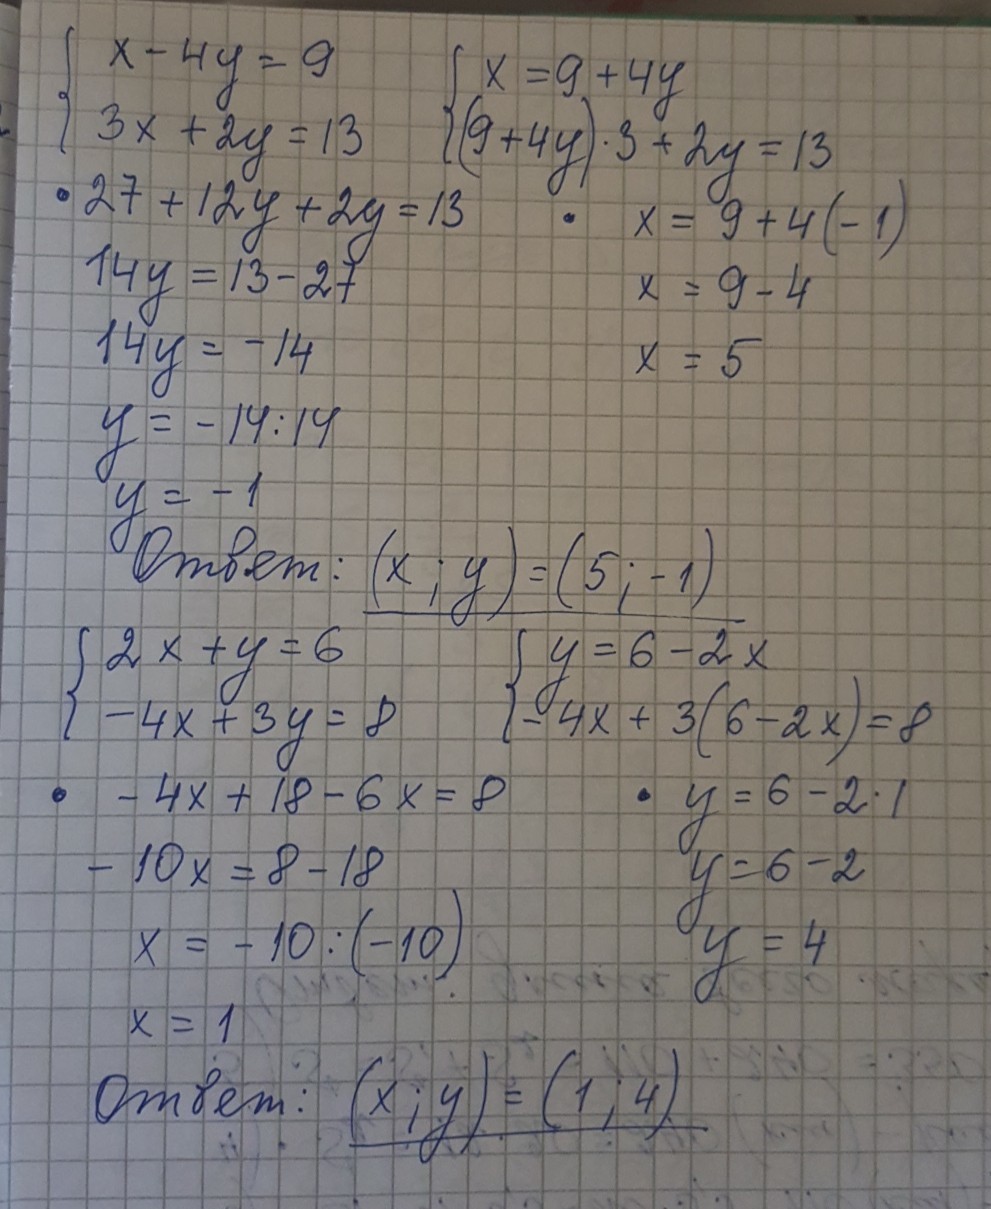 { x - 4y = 9
3x + 2y = 13
{ x = 9 + 4y
(9 + 4y) · 3 + 2y = 13
• 27 + 12y + 2y = 13
14y = 13 - 27
14y = -14
y = -14 : 14
y = -1
• x = 9 + 4(-1)
x = 9 - 4
x = 5
Ответ: (x ; y) = (5 ; -1)
{ 2x + y = 6
-4x + 3y = 8
{ y = 6 - 2x
-4x + 3(6 - 2x) = 8
• -4x + 18 - 6x = 8
-10x = 8 - 18
x = -10 : (-10)
x = 1
• y = 6 - 2 · 1
y = 6 - 2
y = 4
Ответ: (x ; y) = (1 ; 4)